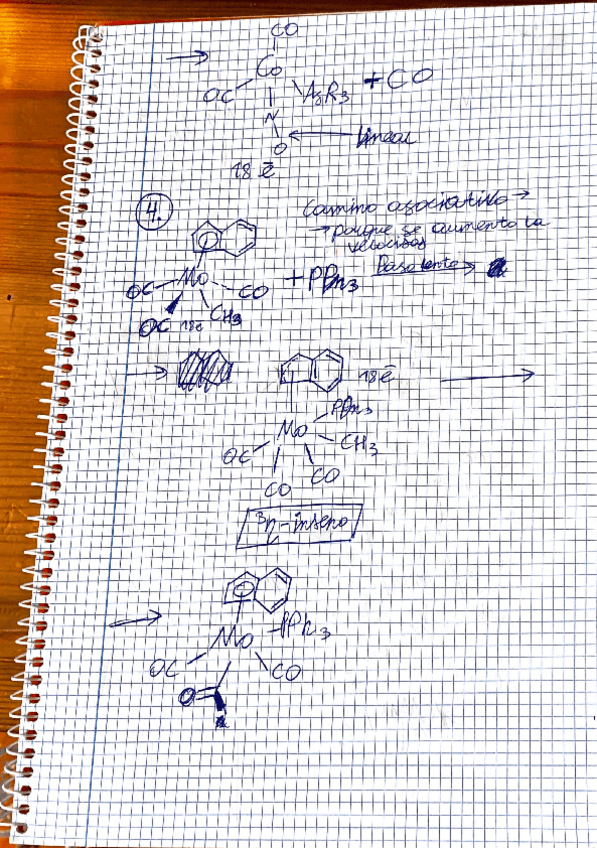 CO
Co
OC
AsR3
+ CO
N
O
lineal
18 ē
4.
camino asociativo →
→ porque se aumenta la
velocidad
Mo
OC
CO
+ PPh3
Paso lento
OC
18ē
CH3
18 ē
PPh3
Mo
CH3
OC
CO
CO
³η-indeno
Mo
PPh3
OC
CO
O